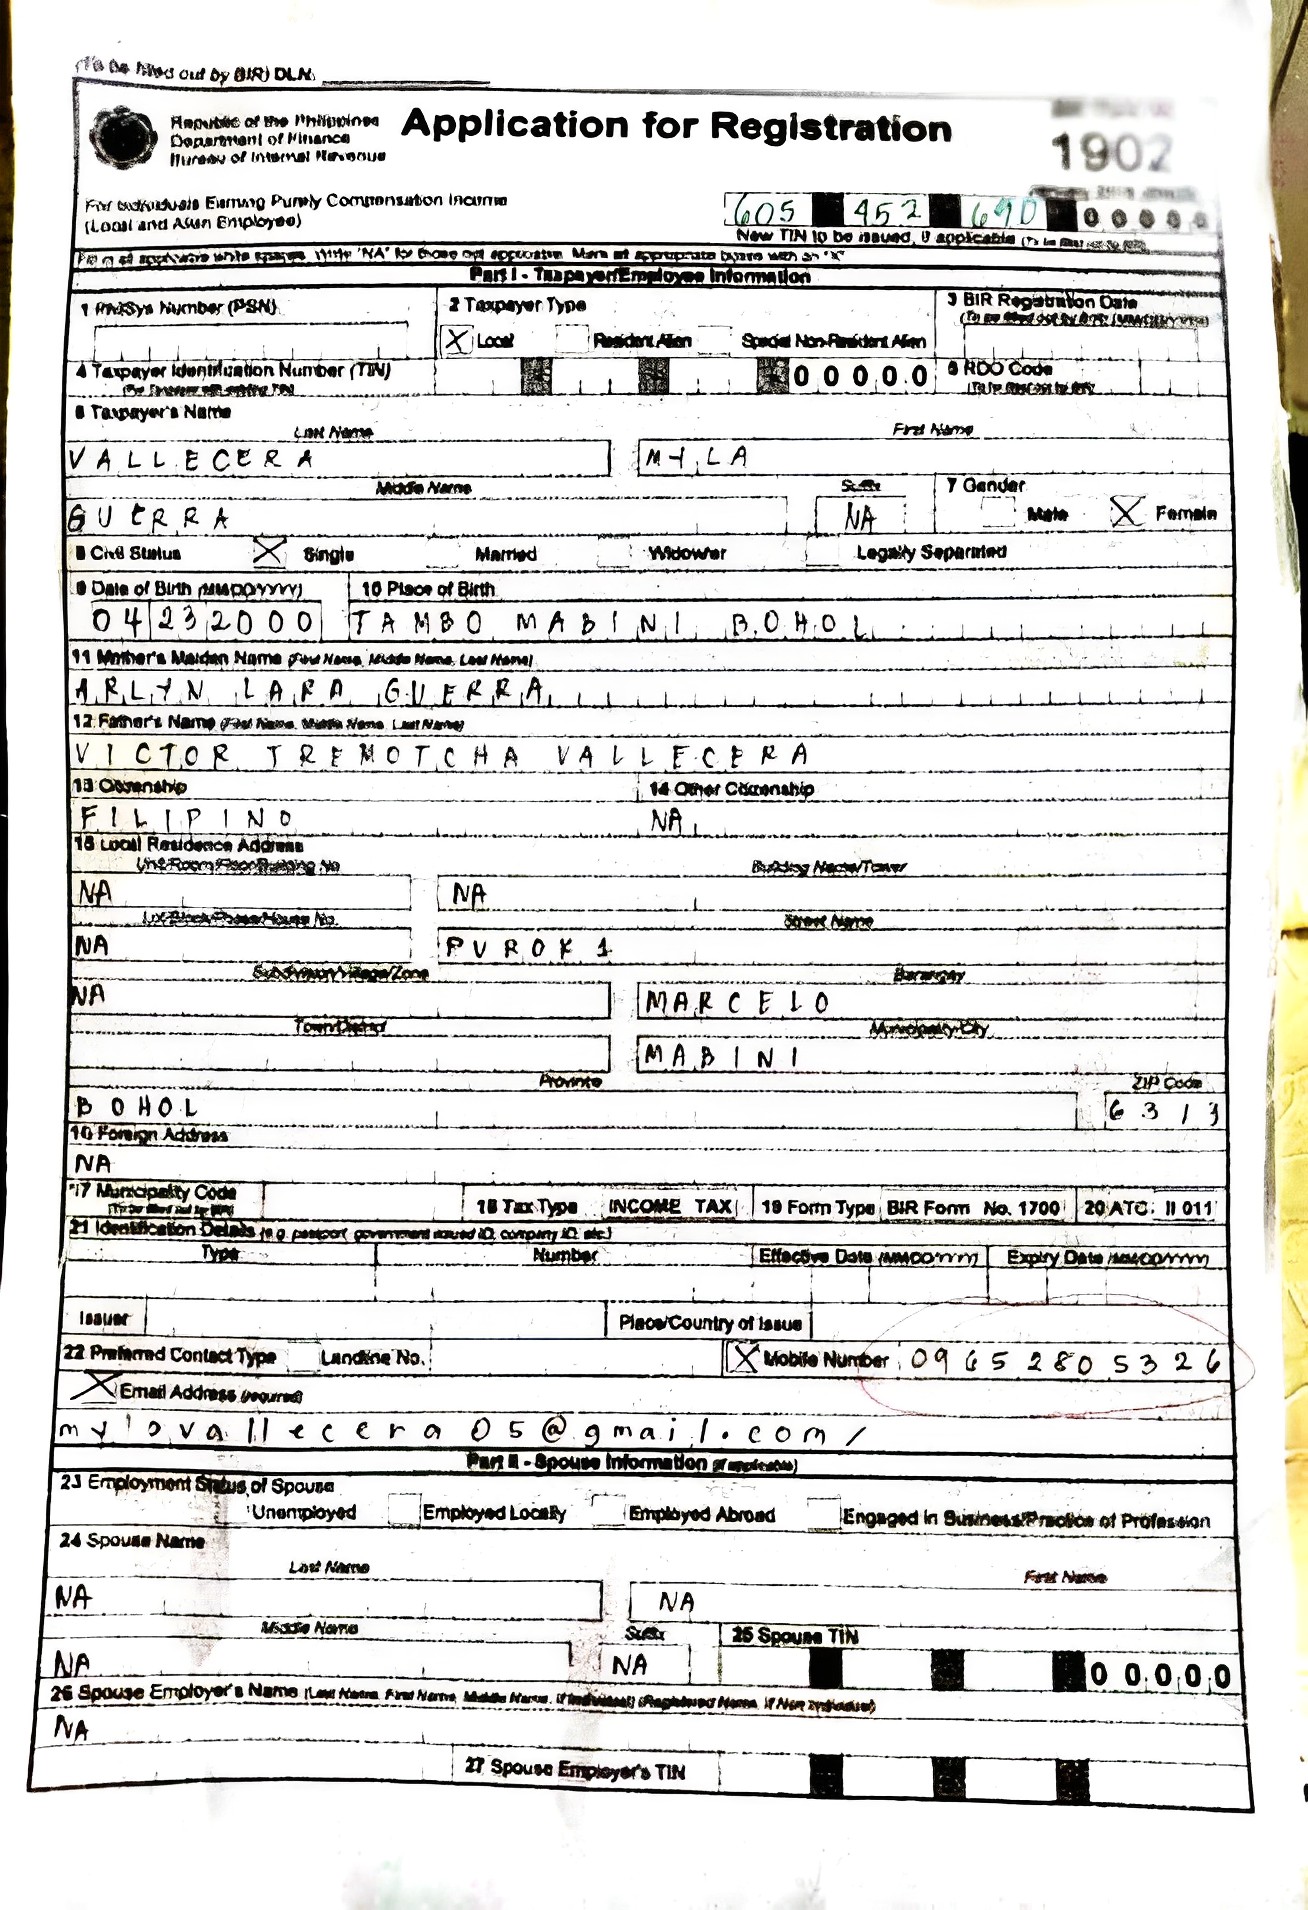 (To be filled out by BIR) DLN:
Republic of the Philippines
Department of Finance
Bureau of Internal Revenue
Application for Registration
1902
For Individuals Earning Purely Compensation Income
(Local and Alien Employee)
605 452 690 00000
New TIN to be issued, if applicable (To be filled out by BIR)
Fill in all applicable white spaces. Write "NA" for those not applicable. Mark all appropriate boxes with an "X"
Part I - Taxpayer/Employee Information
1 PhilSys Number (PSN) 2 Taxpayer Type 3 BIR Registration Date
(To be filled out by BIR) (MM/DD/YYYY)
X Local Resident Alien Special Non-Resident Alien
4 Taxpayer Identification Number (TIN) 00000 5 RDO Code
(For Taxpayer with existing TIN) (To be filled out by BIR)
6 Taxpayer's Name
Last Name First Name
VALLECERA MYLA
Middle Name Suffix 7 Gender
GUERRA NA Male X Female
8 Civil Status X Single Married Widow/er Legally Separated
9 Date of Birth (MM/DD/YYYY) 10 Place of Birth
04 23 2000 TAMBO MABINI BOHOL
11 Mother's Maiden Name (First Name, Middle Name, Last Name)
ARLYN LARA GUERRA
12 Father's Name (First Name, Middle Name, Last Name)
VICTOR TREMOTCHA VALLECERA
13 Citizenship 14 Other Citizenship
FILIPINO NA
15 Local Residence Address
Unit/Room/Floor/Building No. Building Name/Tower
NA NA
Lot/Block/Phase/House No. Street Name
NA PUROK 1
Subdivision/Village/Zone Barangay
NA MARCELO
Town/District Municipality/City
MABINI
Province ZIP Code
BOHOL 6313
16 Foreign Address
NA
17 Municipality Code 18 Tax Type INCOME TAX 19 Form Type BIR Form No. 1700 20 ATC II 011
(To be filled out by BIR)
21 Identification Details (e.g. passport, government issued ID, company ID, etc.)
Type Number Effective Date (MM/DD/YYYY) Expiry Date (MM/DD/YYYY)
Issuer Place/Country of Issue
22 Preferred Contact Type Landline No. X Mobile Number 09652805326
X Email Address (required)
@gmail.com/
Part II - Spouse Information (if applicable)
23 Employment Status of Spouse
Unemployed Employed Locally Employed Abroad Engaged in Business/Practice of Profession
24 Spouse Name
Last Name First Name
NA NA
Middle Name Suffix 25 Spouse TIN
NA NA 00000
26 Spouse Employer's Name (Last Name, First Name, Middle Name, if Individual) (Registered Name, if Non-Individual)
NA
27 Spouse Employer's TIN